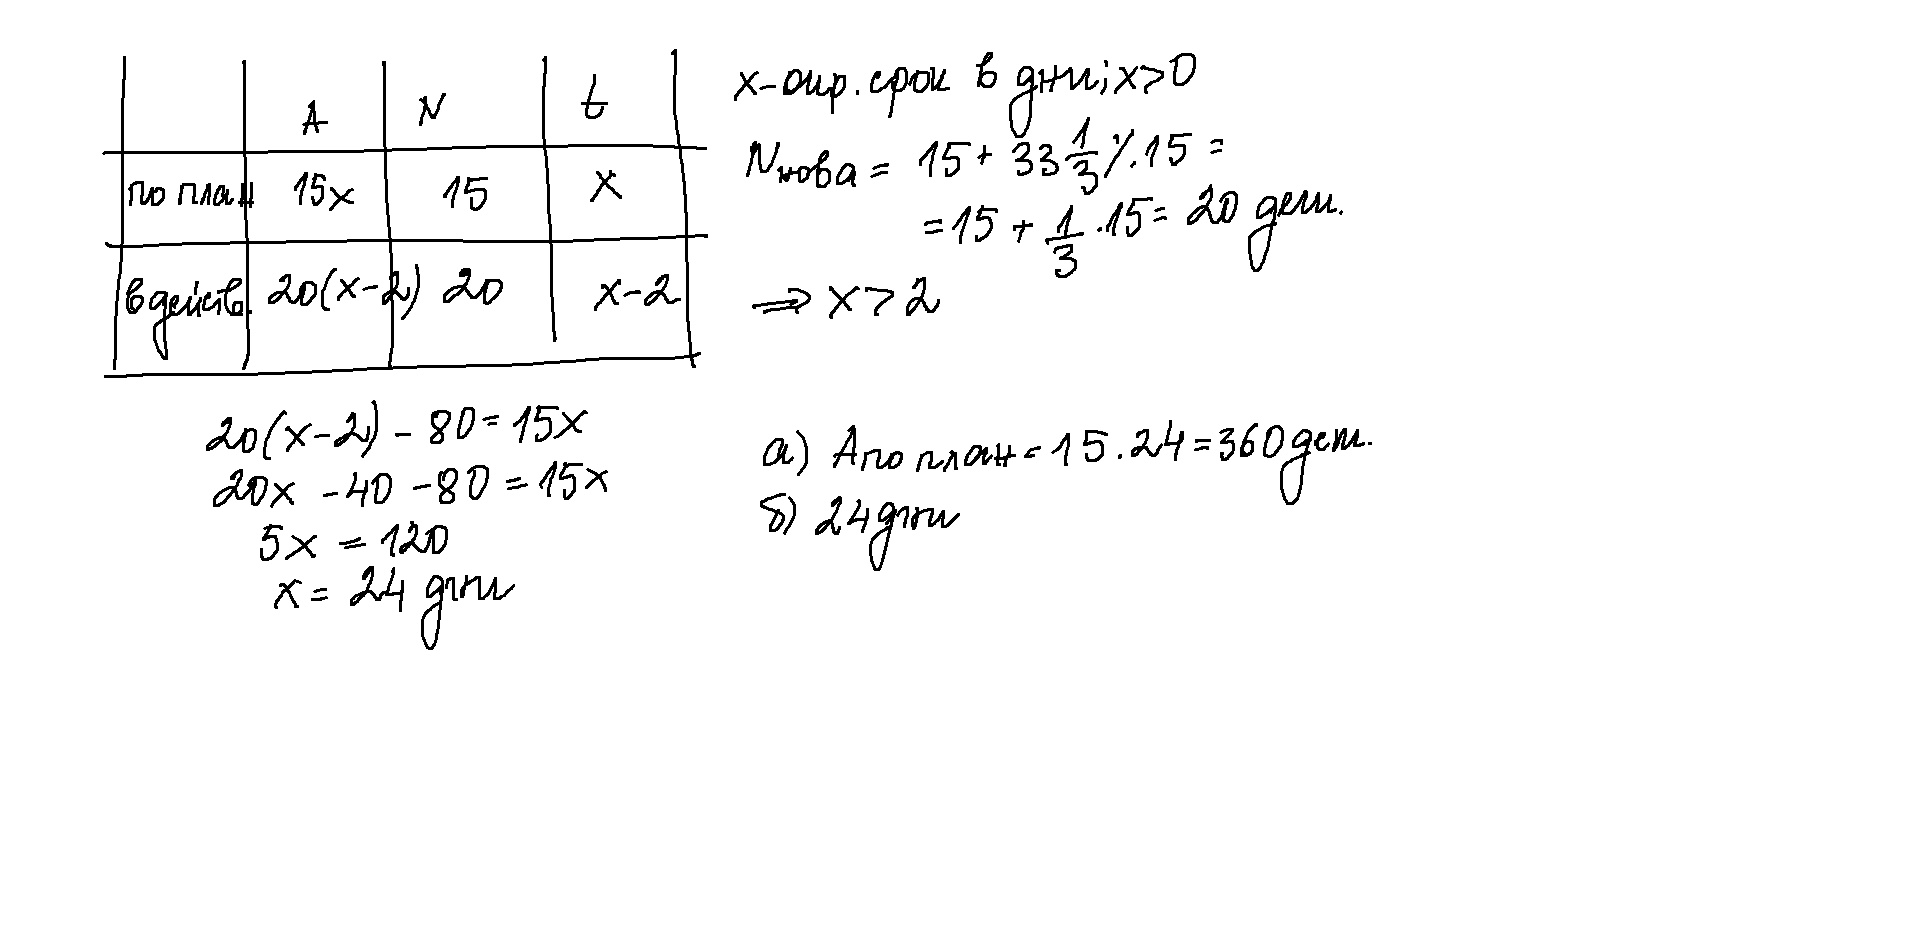 A N t
по план 15x 15 x
в действ. 20(x-2) 20 x-2
x-опр. срок в дни; x>0
Nнова = 15 + 33 1/3 %.15 =
= 15 + 1/3 .15 = 20 дет.
⇒ x > 2
20(x-2) - 80 = 15x
20x - 40 - 80 = 15x
5x = 120
x = 24 дни
а) Aпо план = 15.24 = 360 дет.
б) 24 дни